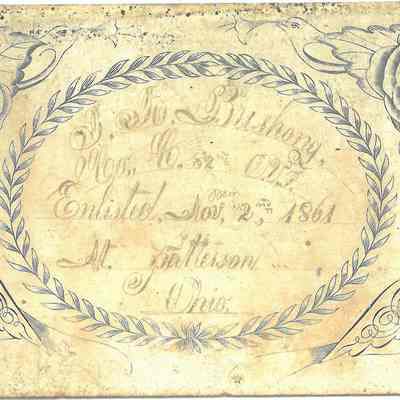 J. H. Bushong,
Co., C. 52nd O.V.I.
Enlisted, Nov, 2,nd 1861
At Patterson
Ohio.